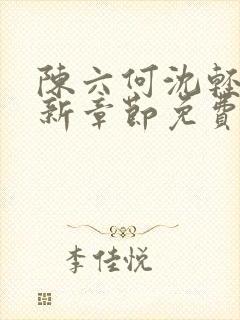 陳六何沈輕
新章節免費
李佳悦